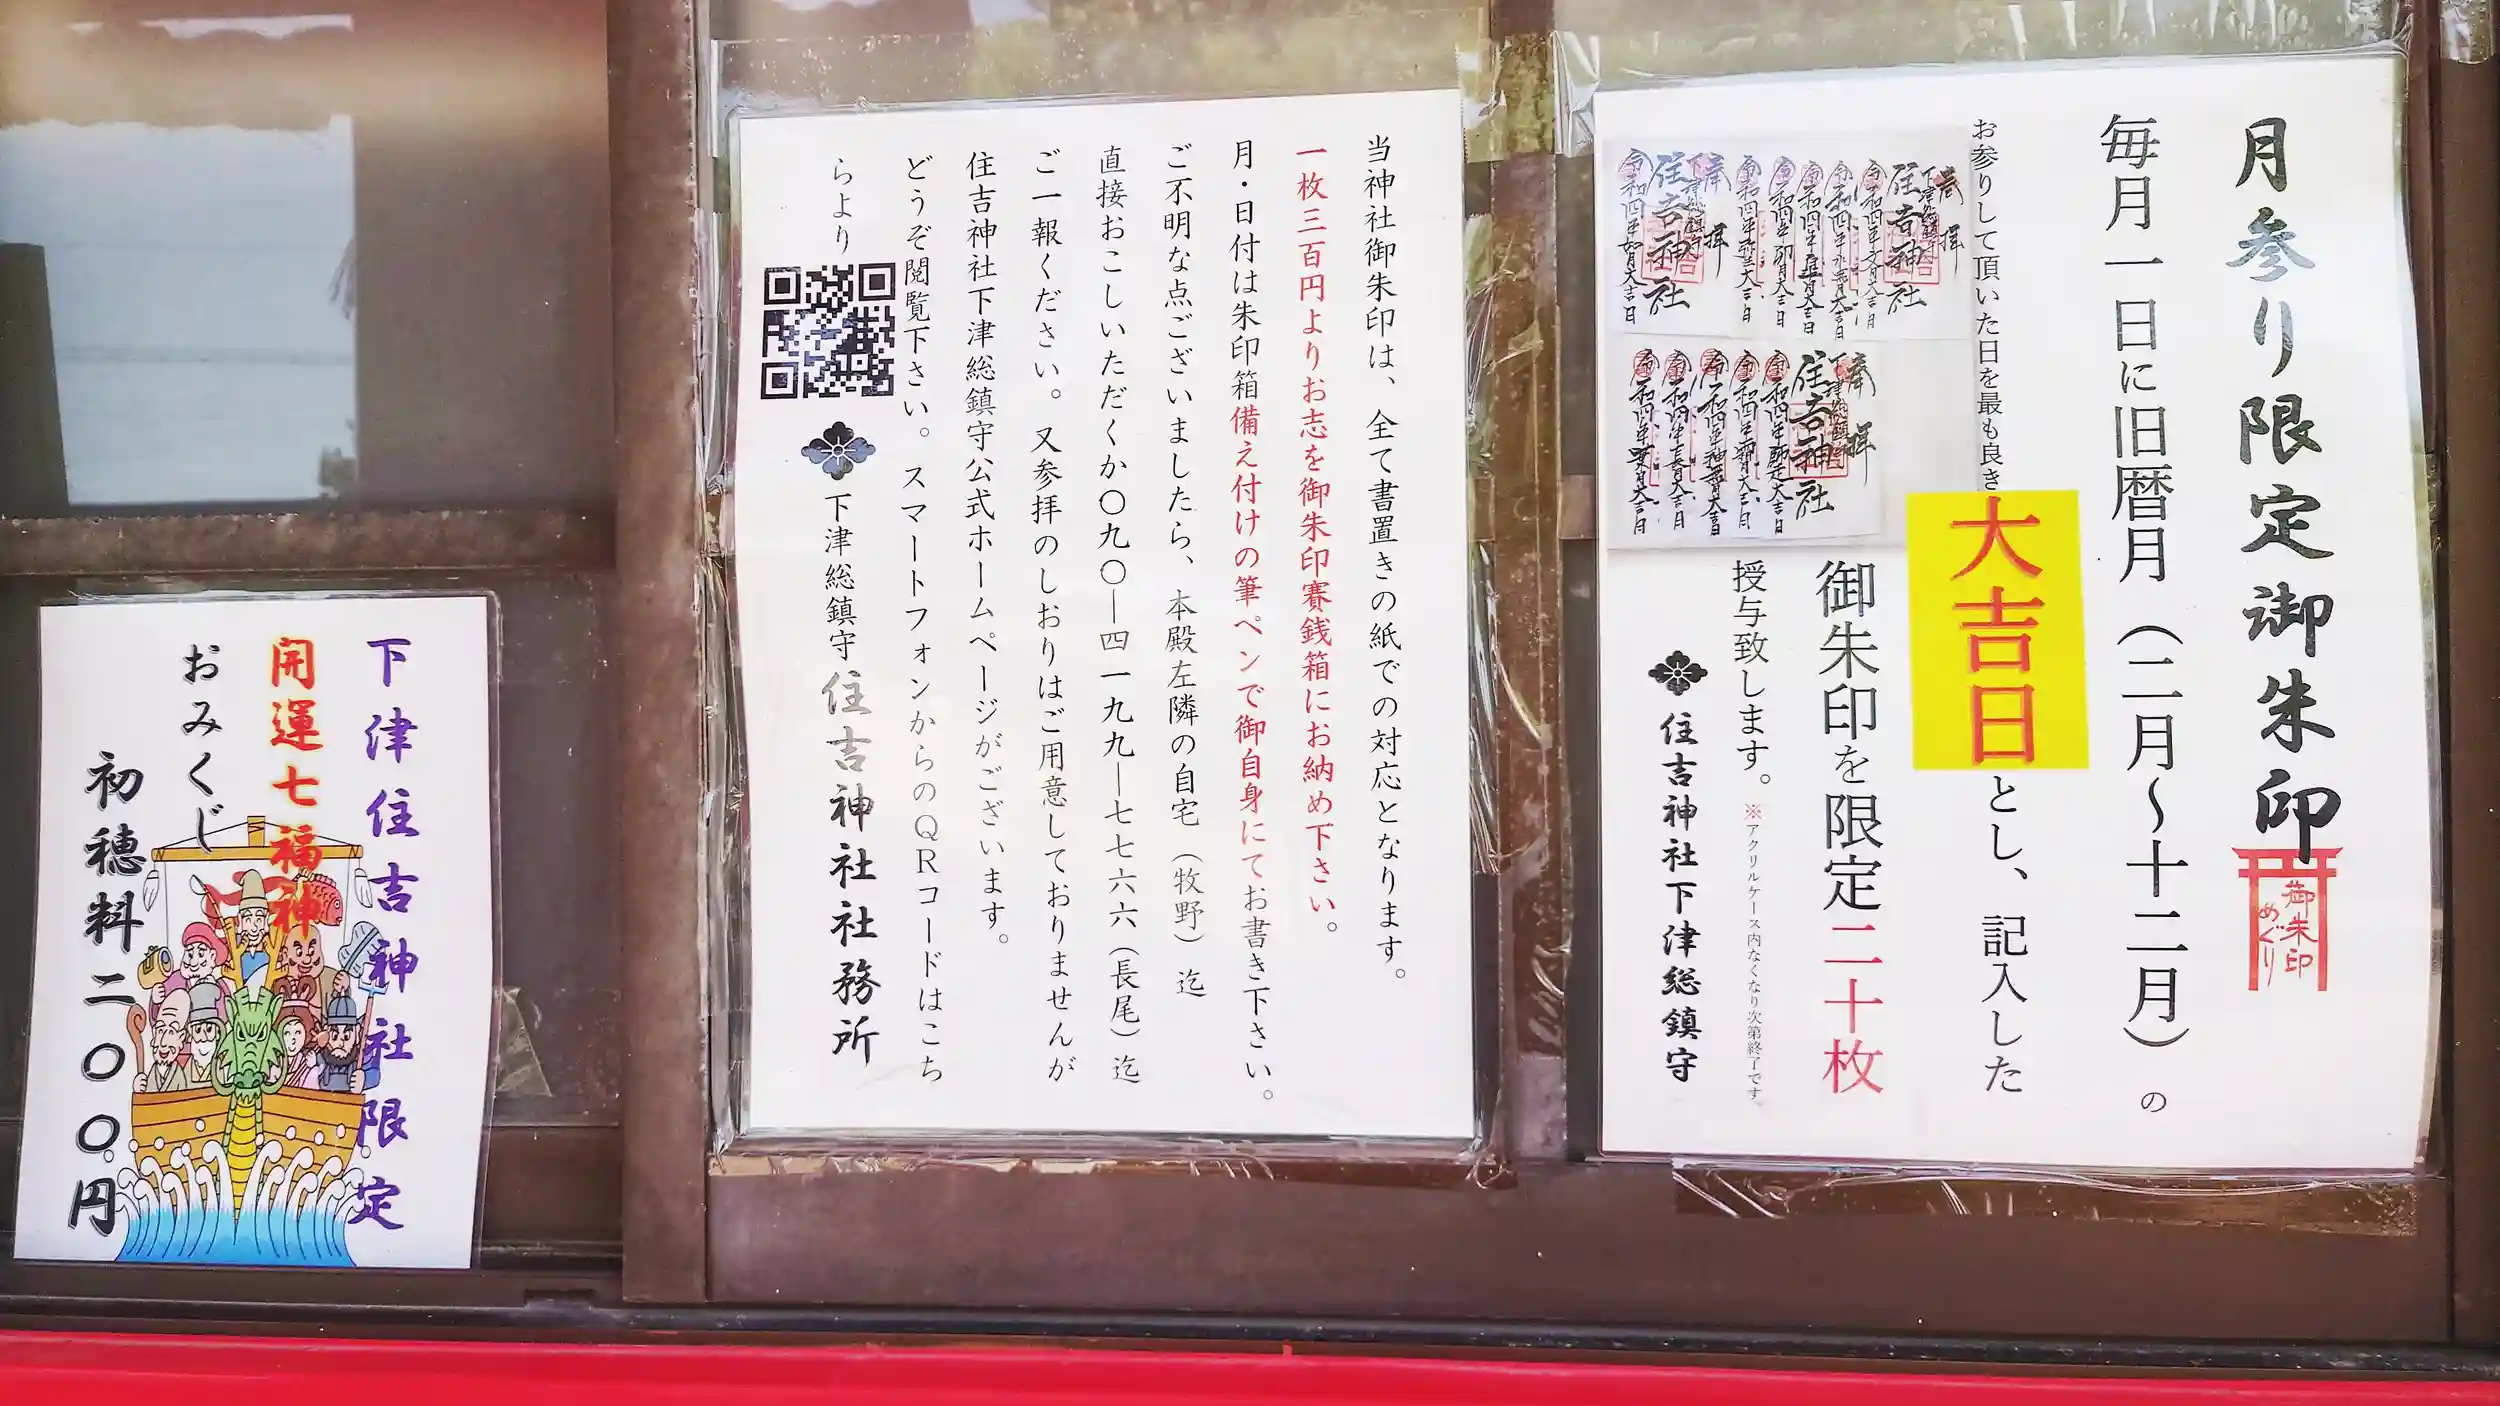 月参り限定御朱印
御朱印
めぐり
毎月一日に旧暦月（二月～十二月）の
お参りして頂いた日を最も良き
大吉日
とし、記入した
御朱印を限定二十枚
授与致します。
※アクリルケース内なくなり次第終了です。
住吉神社下津総鎮守
当神社御朱印は、全て書置きの紙での対応となります。
一枚三百円よりお志を御朱印賽銭箱にお納め下さい。
月・日付は朱印箱備え付けの筆ペンで御自身にてお書き下さい。
ご不明な点ございましたら、本殿左隣の自宅（牧野）迄
直接おこしいただくか〇九〇―四一九九―七七六六（長尾）迄
ご一報ください。又参拝のしおりはご用意しておりませんが
住吉神社下津総鎮守公式ホームページがございます。
どうぞ閲覧下さい。スマートフォンからのＱＲコードはこち
らより
下津総鎮守 住吉神社社務所
下津住吉神社限定
開運七福神
おみくじ
初穂料二〇〇円